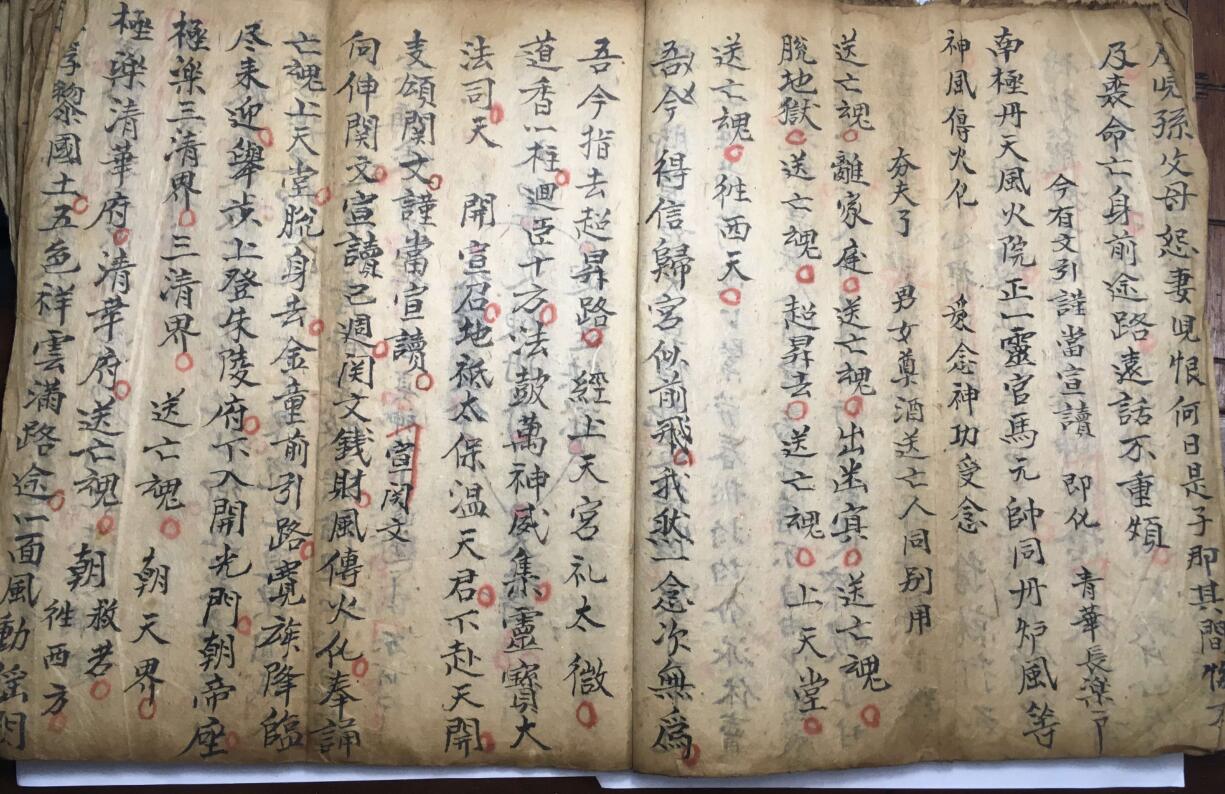 孫父母怨妻児恨何日是子即其間
及喪命亡身前途路遠話不重煩
今有文引謹當宣讀 即化 青華長楽
南極丹天風火院正一靈官馬元帥同丹炉風等
神風傳火化 爰念神功受念
夯夫了 男女奠酒送亡人同别用
送亡魂離家庭送亡魂出幽冥送亡魂
脫地獄送亡魂超昇去送亡魂上天堂
送亡魂徃西天
吾今得信歸宮似前飛我狀一念次無為
吾今指去超昇路經上天宮礼太微
道香一炷迴臣十方法鼓萬神咸集靈寶大
法司天 開宣召地祇太保温天君下赴天開
支頌関文謹當宣讀 宣関文
向伸関文宣讀已週関文銭財風傳火化奉誦
亡魂上天堂脫身去金童前引路寛族降臨
尽来迎舉步上登朱陵府下入開光門朝帝座
極楽三清界三清界 送亡魂 朝天界
極楽清華府清華府送亡魂 朝救苦
國土五色祥雲滿路途 徃西方
一面風動